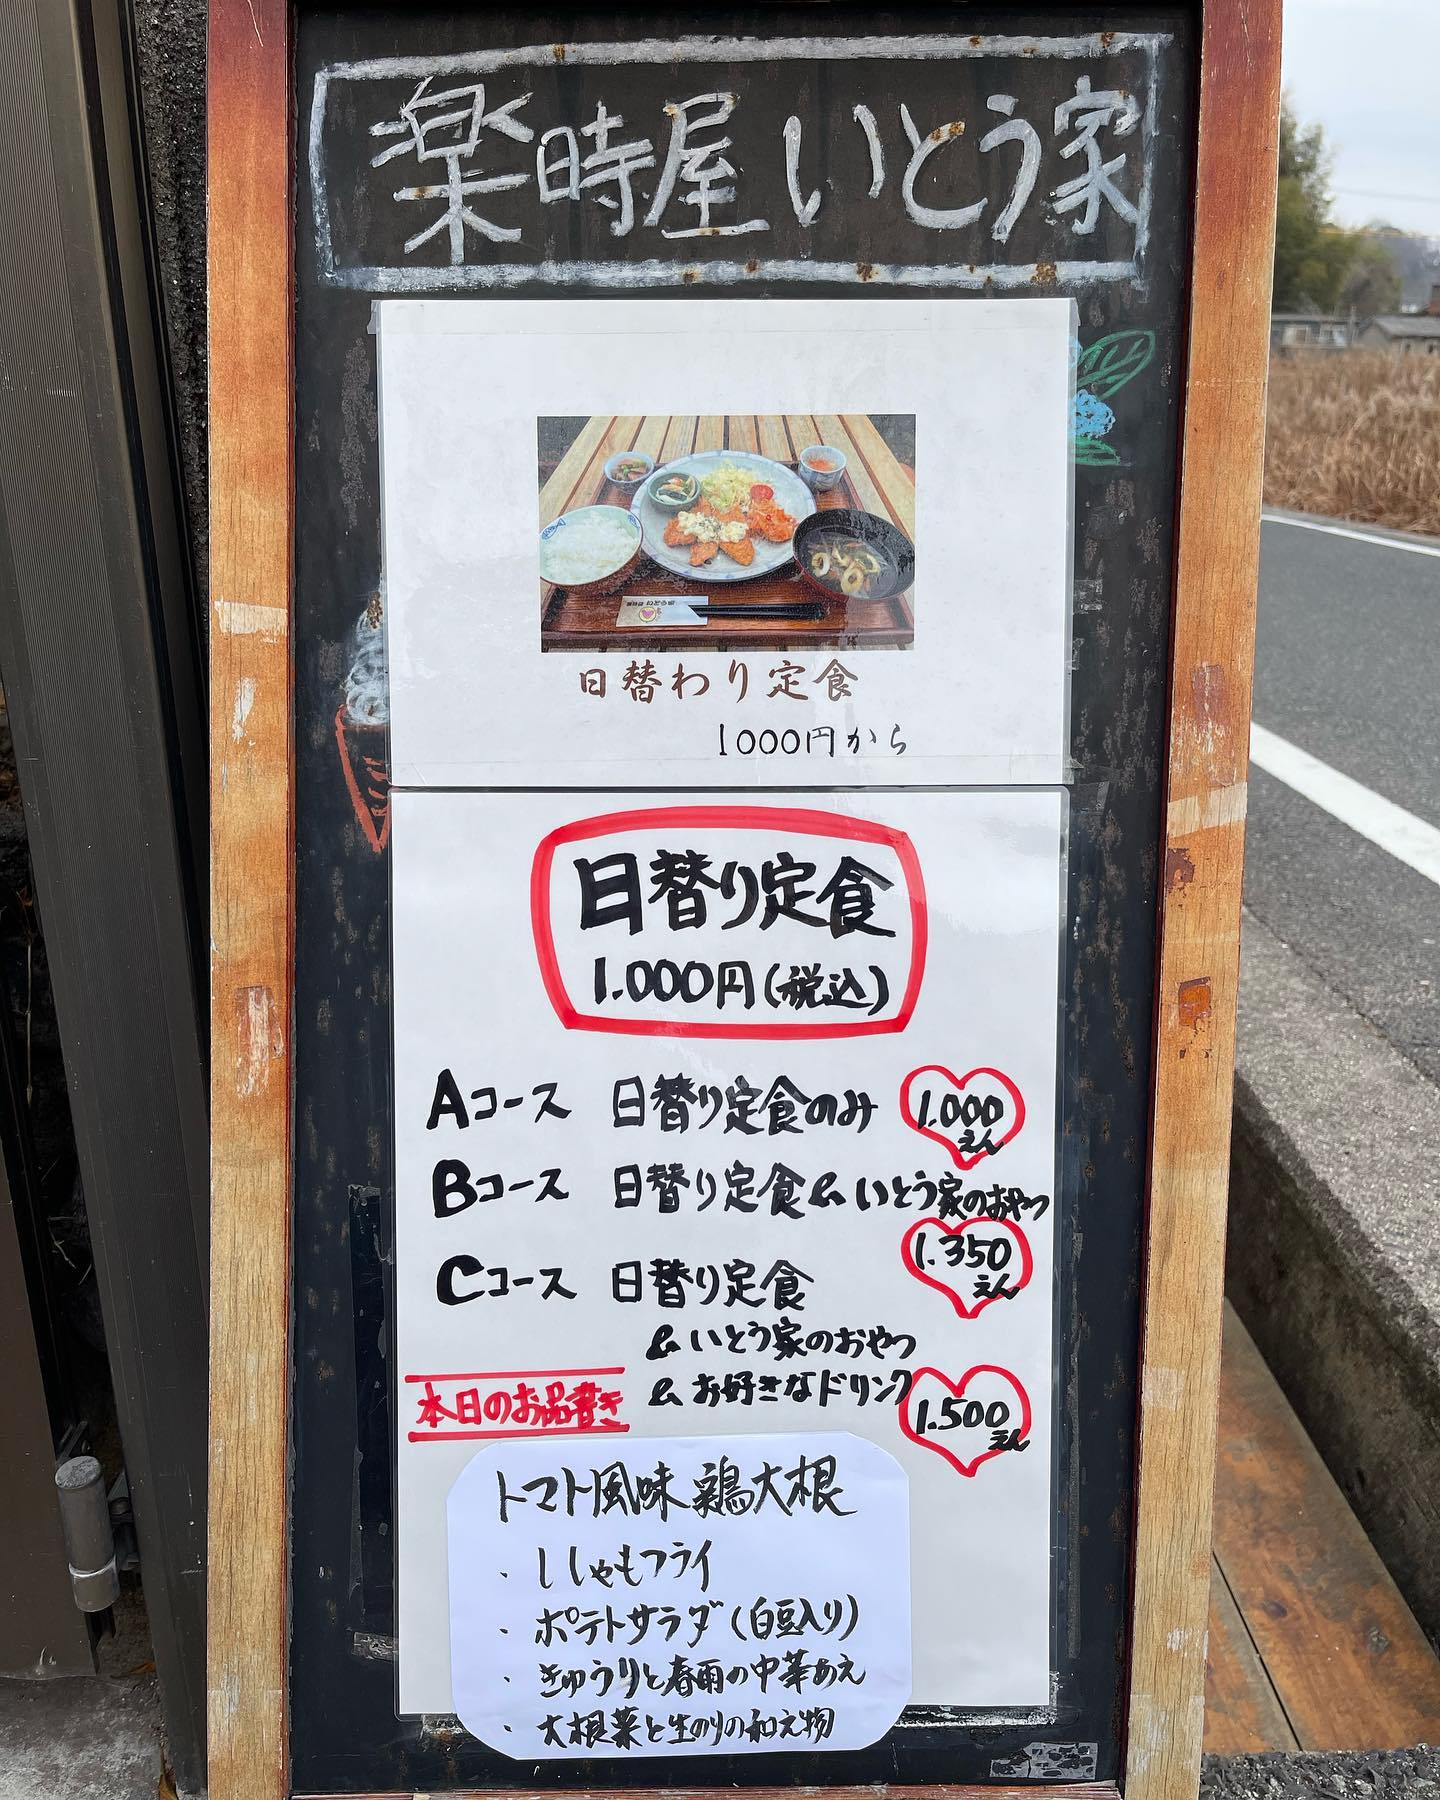 楽時屋 いとう家
日替わり定食
1000円から
日替り定食
1.000円(税込)
Aコース 日替り定食のみ 1.000えん
Bコース 日替り定食&いとう家のおやつ
1.350えん
Cコース 日替り定食
&いとう家のおやつ
&お好きなドリンク 1.500えん
本日のお品書き
トマト風味 鶏大根
・ししゃもフライ
・ポテトサラダ(白豆入り)
・きゅうりと春雨の中華あえ
・大根葉と生のりの和え物